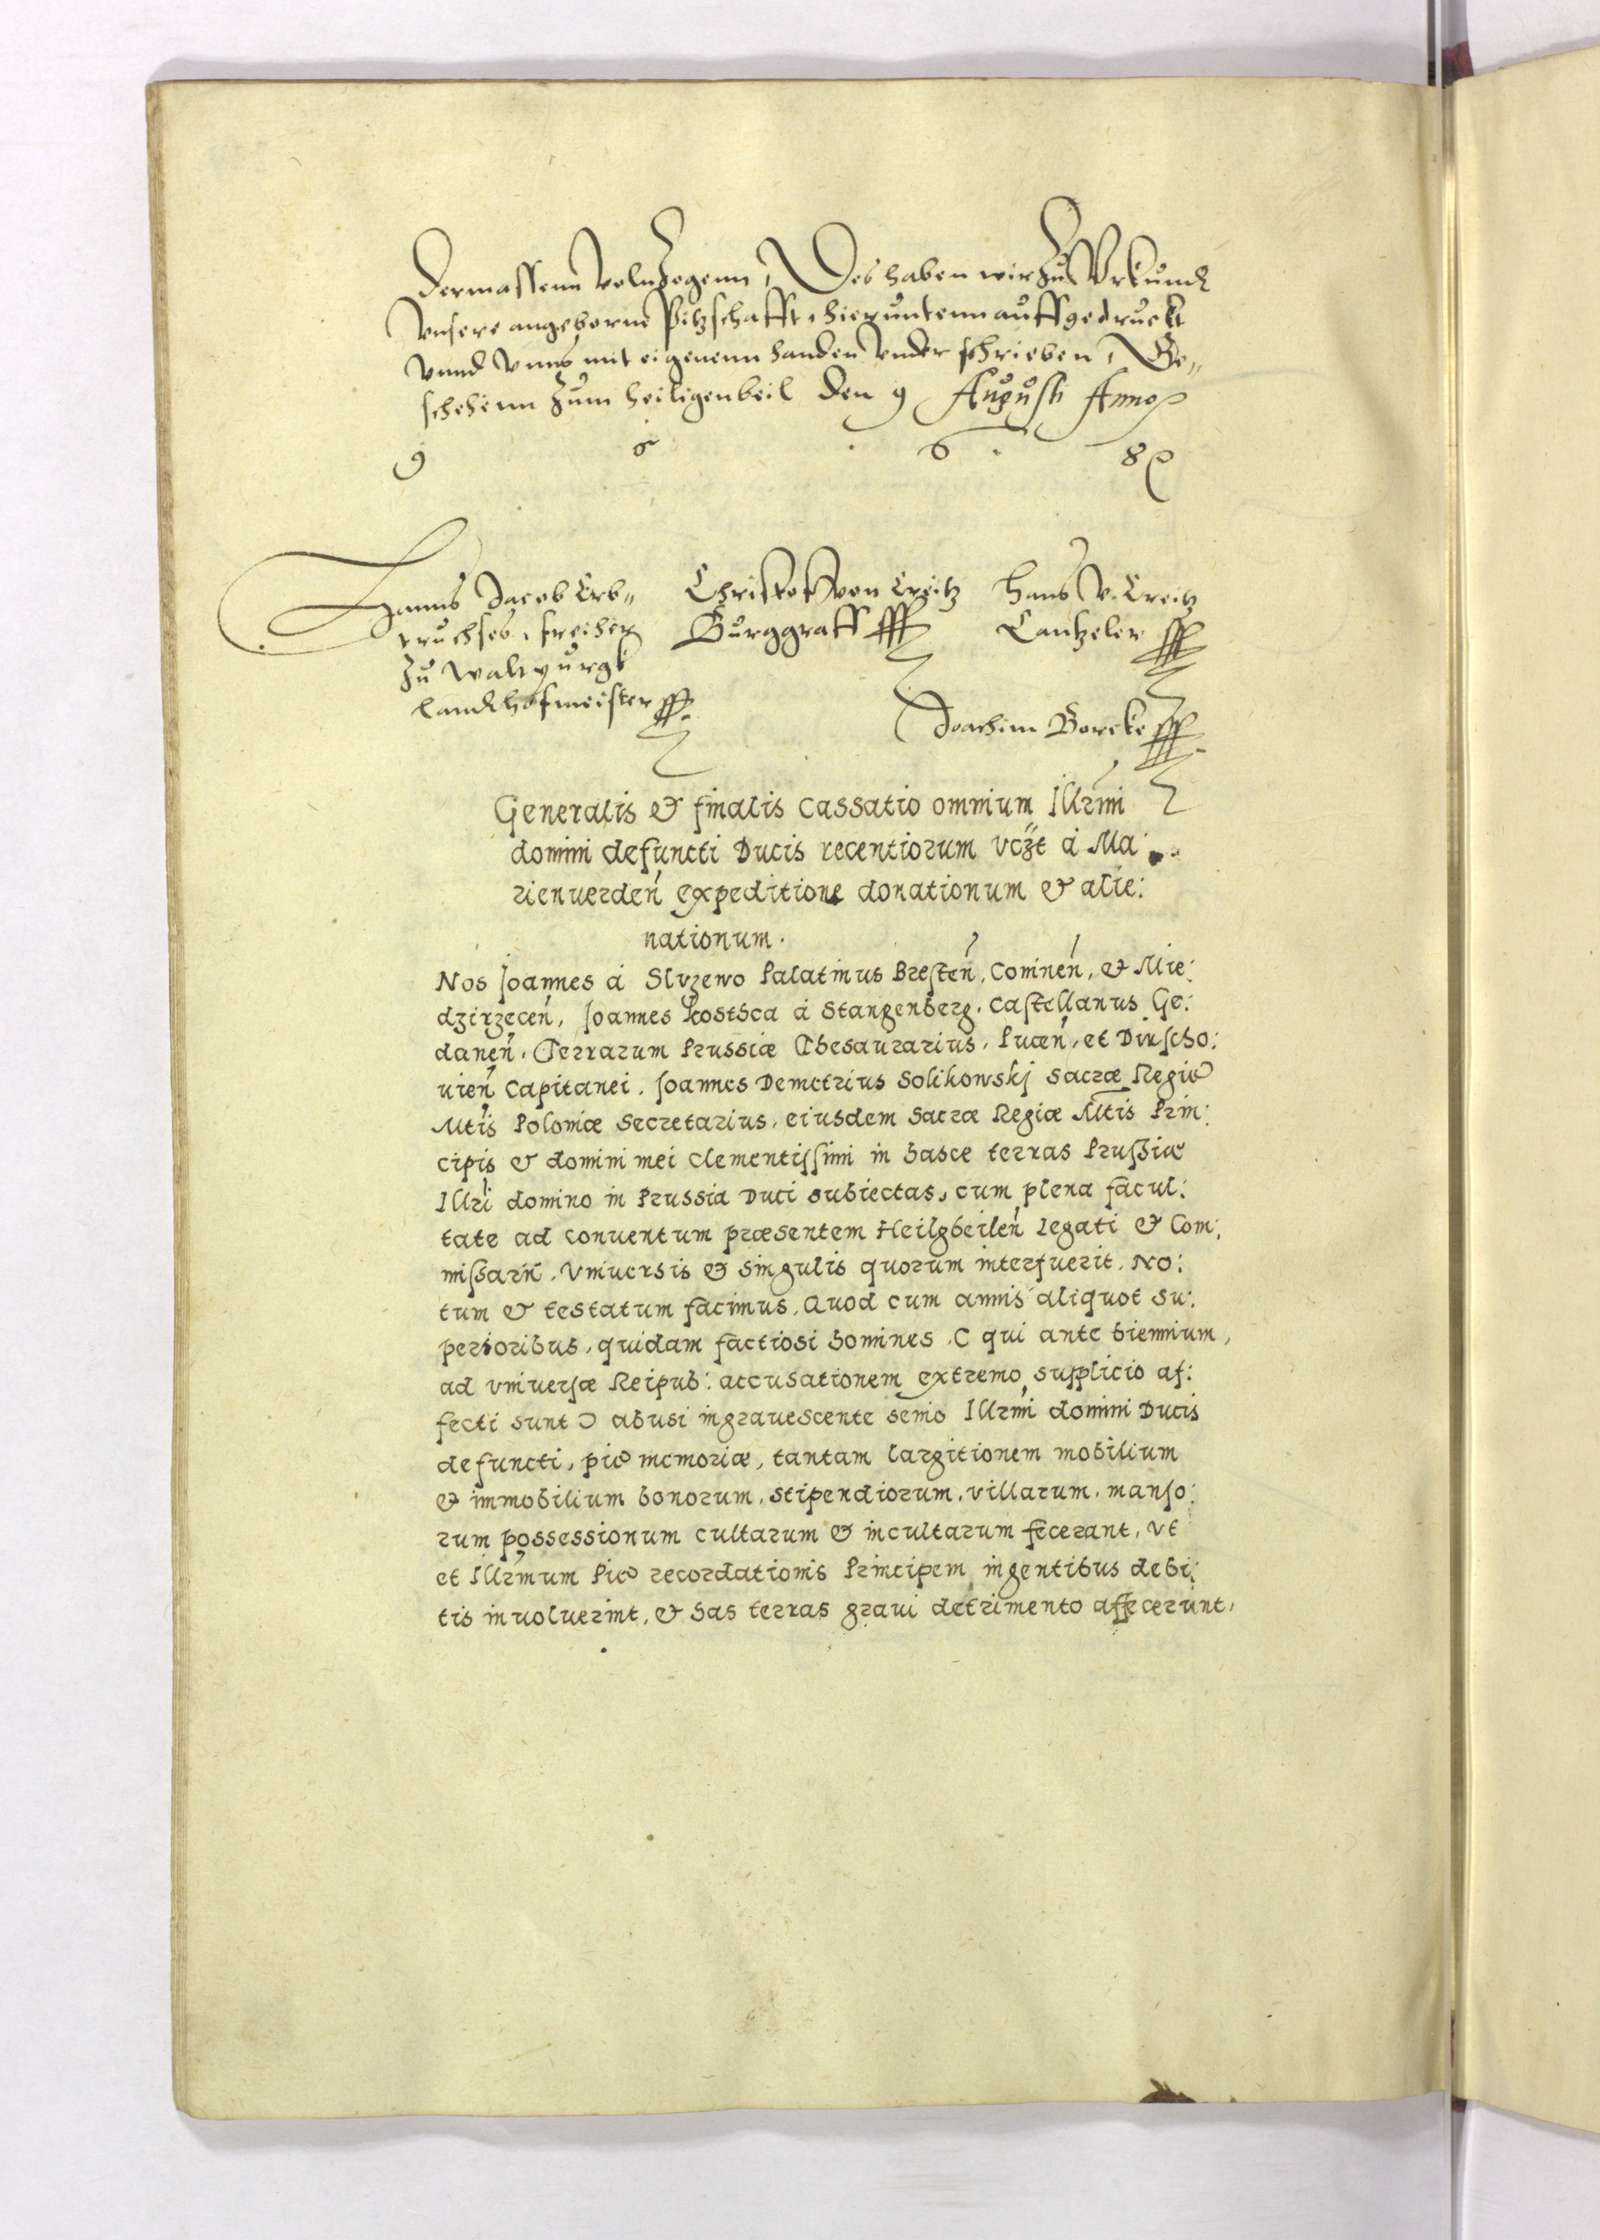 dermassenn volnzogenn, Des haben wir zu Vrkundt
vnsere angeborne Pitzschafft, hieruntenn auffgedruckt
vnnd vnns mit eigenenn handen vnderschrieben, Ge„
schehenn zum heiligenbeil den 9 Augusti Anno
6 8
Hanns Jacob Erb„
truchses, freiher
zu waltpurgk
landthofmeister
Christof von Creitz
Burggraff
Hans V. Creitz
Cantzeler
Joachim Borcke
Generalis & finalis cassatio omnium Illrmi
domini defuncti Ducis recentiorum vczt á Ma:
rienuerdeń expeditione donationum & alie:
nationum.
Nos Joannes á Sluzewo Palatinus Bresteń, Comneń, & Mie:
dzirzeceń, Joannes Kosthca á Stangenberg, Castellanus Ge:
daneń, Terrarum Prussiæ Thesaurarius, Puceń, et Dirscho:
uień Capitanei, Joannes Demetrius Solikowskj Sacræ Regiæ
Mtis Poloniæ Secretarius, eiusdem Sacræ Regiæ Mtis Prin:
cipis & domini mei Clementissimi in hasce terras Prussiæ
Illri domino in Prussia Duci subiectas, cum plena facul:
tate ad conuentum præsentem Heilgbeileń legati & Com:
missarii, Vniuersis & singulis quorum interfuerit, No:
tum & testatum facimus, Quod cum annis aliquot su:
perioribus, quidam factiosi homines, C qui ante biennium,
ad vniuersæ Reipub: accusationem extremo supplicio af:
fecti sunt Ɔ abusi ingrauescente senio Illrmi domini Ducis
defuncti, piæ memoriæ, tantam largitionem mobilium
& immobilium bonorum, stipendiorum, villarum, manso:
rum possessionum cultarum & incultarum fecerant, vt
et Illrmum Piæ recordationis Principem ingentibus debi:
tis inuoluerint, & has terras graui detrimento affecerunt,